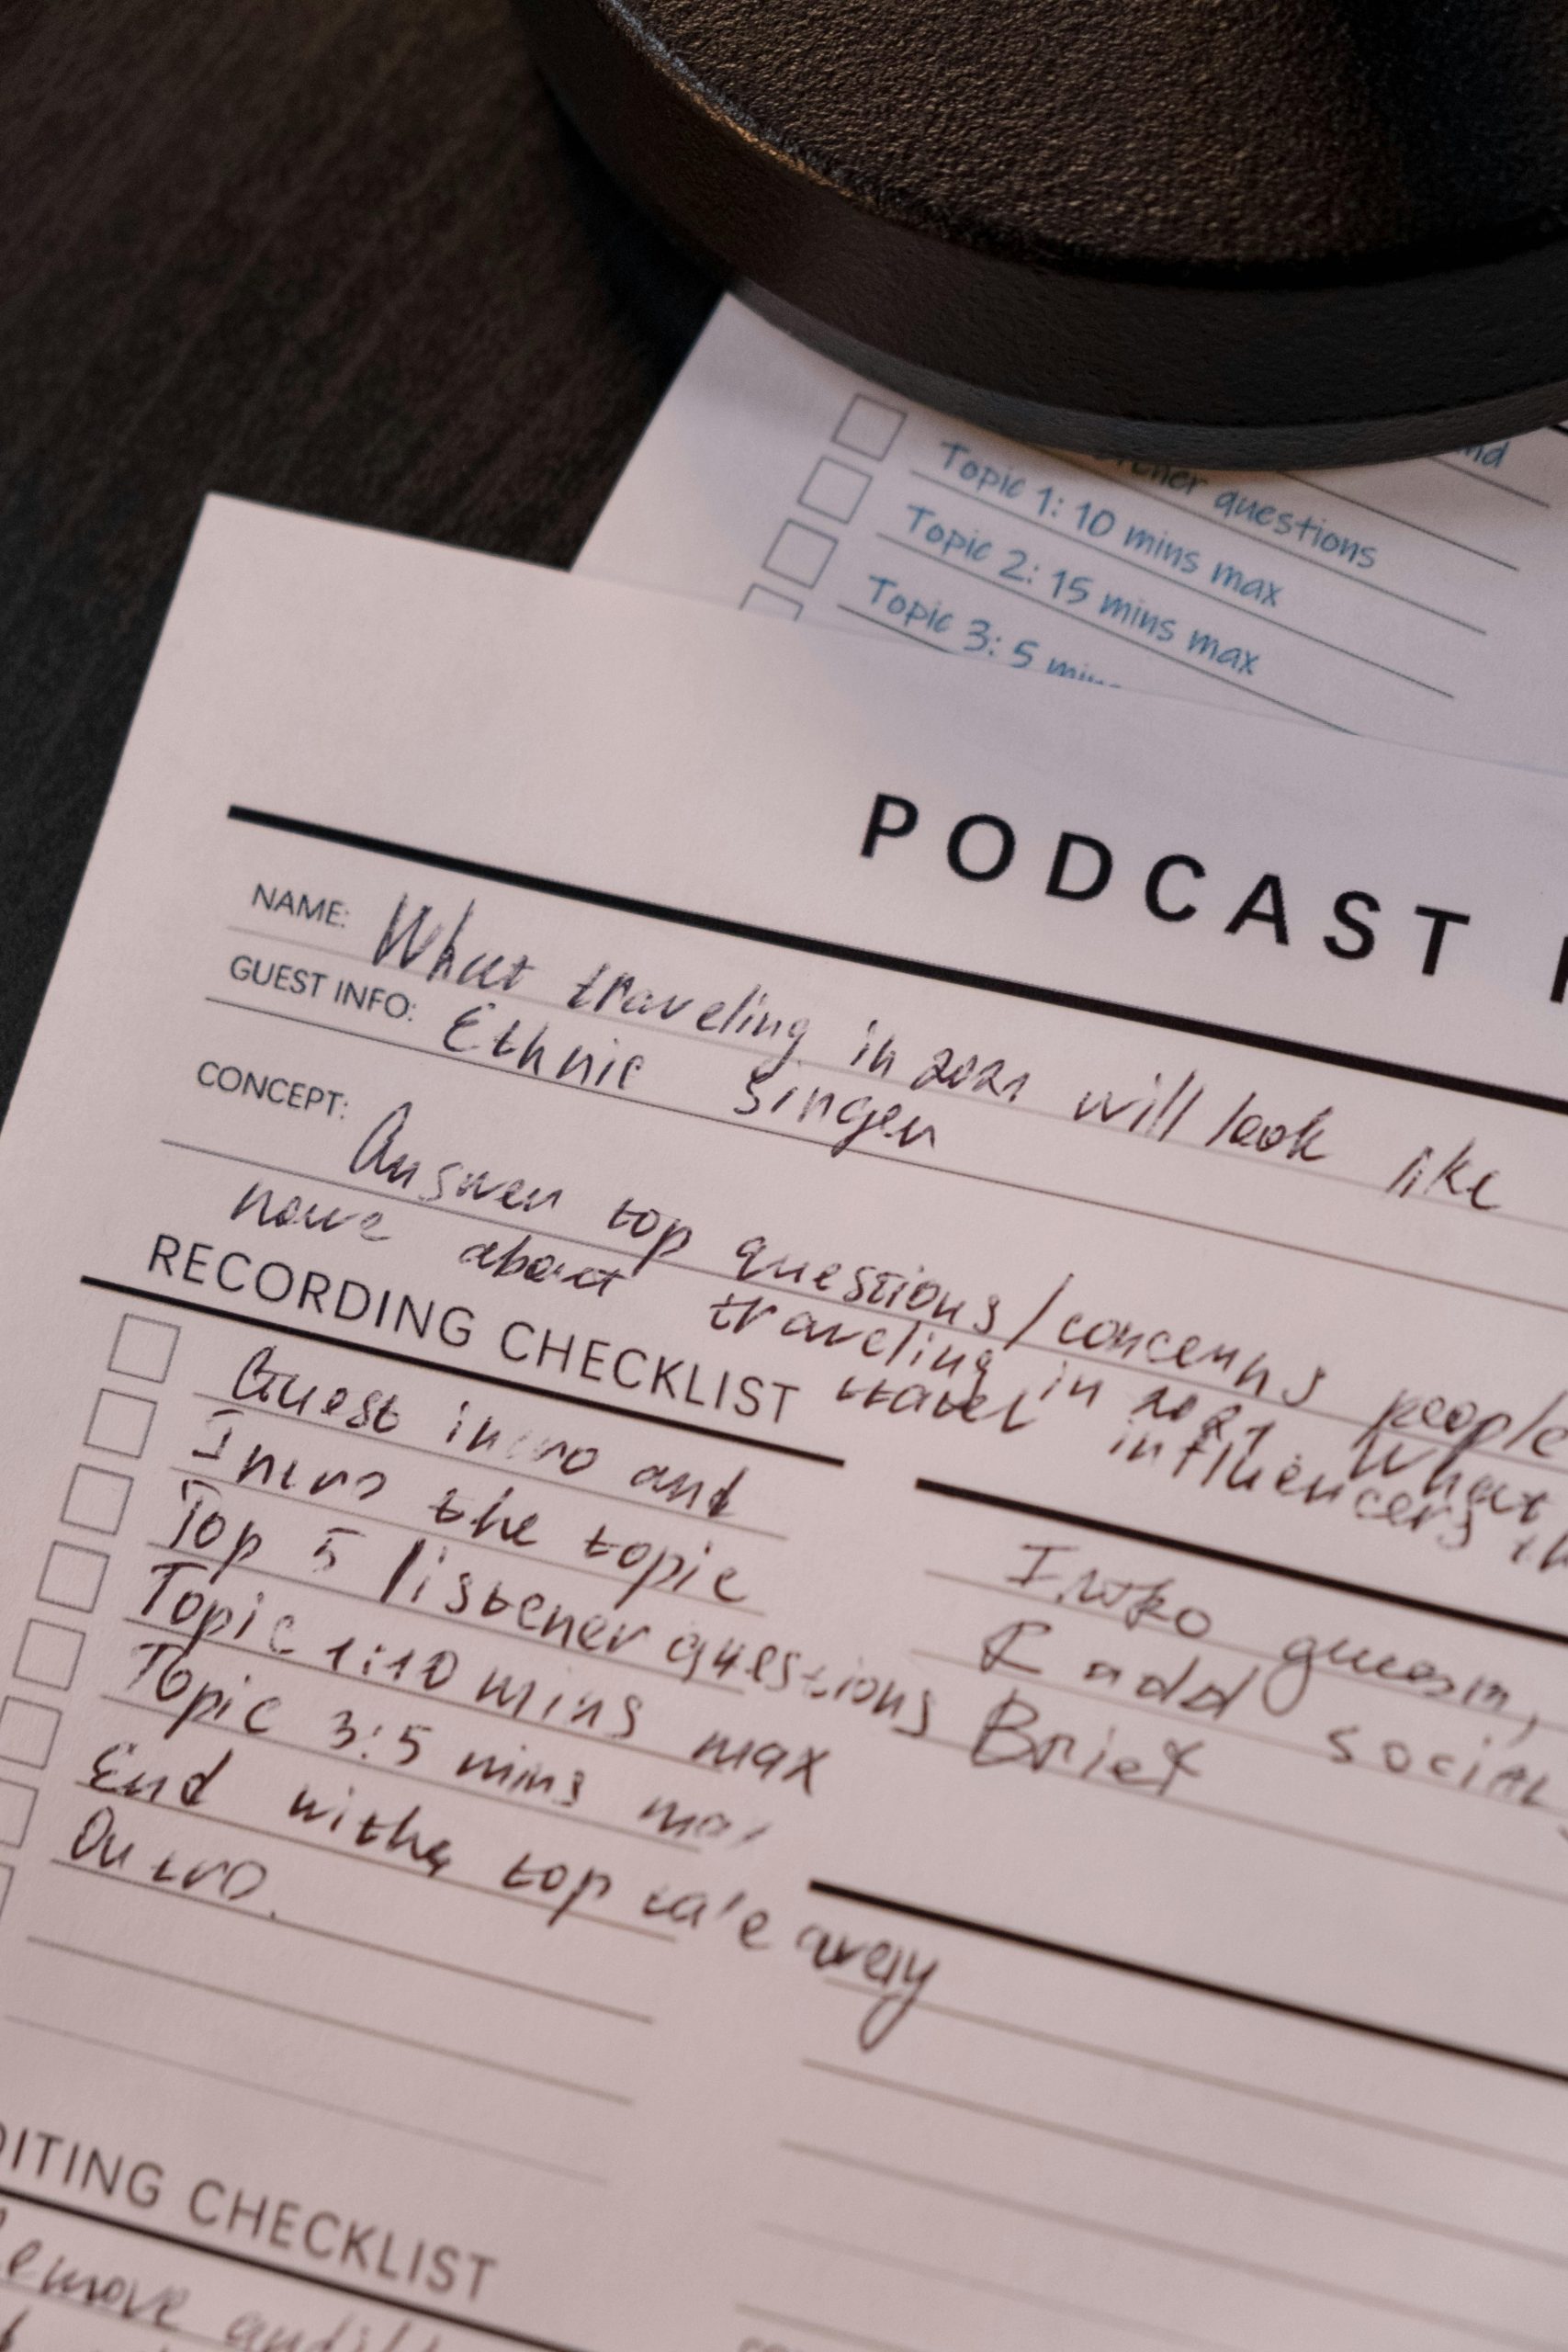 nd
questions
Topic 1: 10 mins max
Topic 2: 15 mins max
Topic 3: 5 min
PODCAST
NAME: What traveling in 2021 will look like
GUEST INFO: Ethnic Singer
CONCEPT: Answer top questions/concerns people
have about traveling in 2021 What
travel influencers
RECORDING CHECKLIST
Guest intro and
Intro the topic
Top 5 listener questions
Topic 1:10 mins max
Topic 3:5 mins max
End with a top take away
Outro.
Intro
& add social
Brief
DITING CHECKLIST
emove